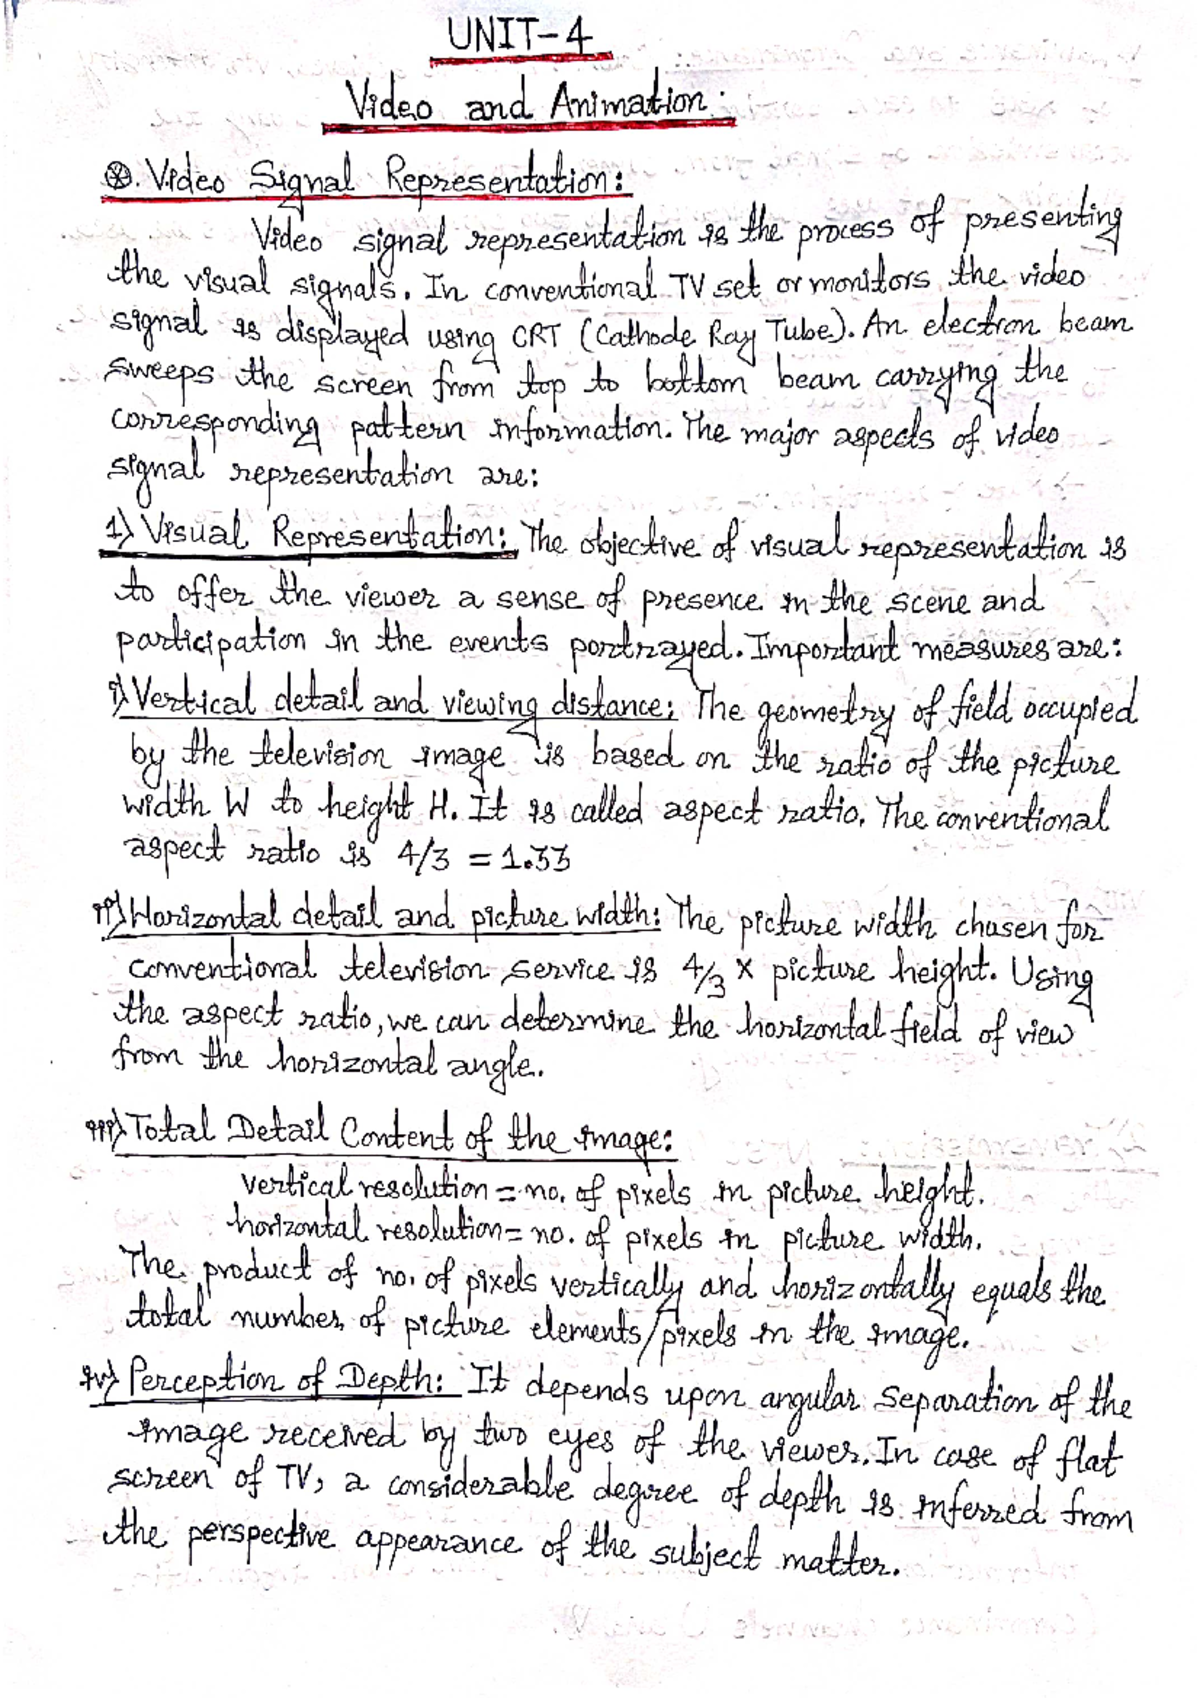 UNIT-4
Video and Animation:
⊛. Video Signal Representation:
Video signal representation is the process of presenting
the visual signals. In conventional TV set or monitors the video
signal is displayed using CRT (Cathode Ray Tube). An electron beam
sweeps the screen from top to bottom beam carrying the
corresponding pattern information. The major aspects of video
signal representation are:
1) Visual Representation: The objective of visual representation is
to offer the viewer a sense of presence in the scene and
participation in the events portrayed. Important measures are:
i) Vertical detail and viewing distance: The geometry of field occupied
by the television image is based on the ratio of the picture
width W to height H. It is called aspect ratio. The conventional
aspect ratio is 4/3 = 1.33
ii) Horizontal detail and picture width: The picture width chosen for
conventional television service is 4/3 × picture height. Using
the aspect ratio, we can determine the horizontal field of view
from the horizontal angle.
iii) Total Detail Content of the image:
vertical resolution = no. of pixels in picture height.
horizontal resolution = no. of pixels in picture width.
The product of no. of pixels vertically and horizontally equals the
total number of picture elements/pixels in the image.
iv) Perception of Depth: It depends upon angular separation of the
image received by two eyes of the viewer. In case of flat
screen of TV, a considerable degree of depth is inferred from
the perspective appearance of the subject matter.